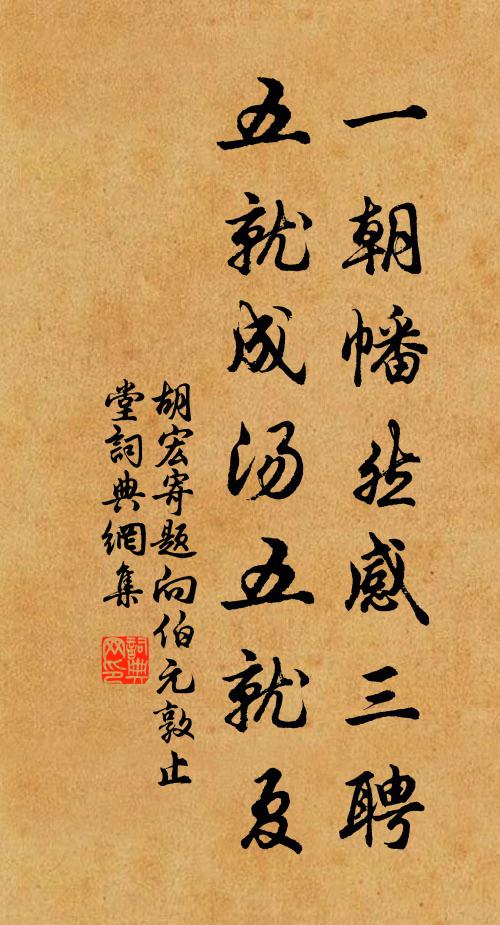 一朝幡然感三聘
五就成汤五就夏
胡宏寄题向伯元敦止
堂詞典網集
詞典
网印